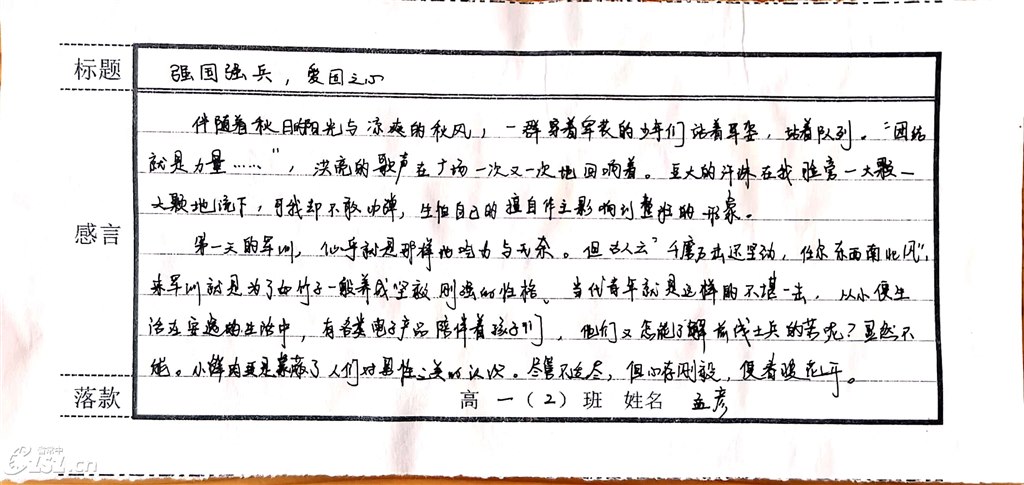 标题
强国强兵，爱国之心
感言
伴随着秋日的阳光与凉爽的秋风，一群穿着军装的少年们站着军姿，站着队列。“团结
就是力量……”，洪亮的歌声在广场一次又一次地回响着。豆大的汗珠在我脸旁一大颗一
大颗地流下，可我却不敢动弹，生怕自己的擅自作主影响到整体的形象。
第一天的军训，似乎就是那样的吃力与无奈。但古人云“千磨万击还坚劲，任尔东西南北风”，
来军训就是为了如竹子一般养成坚毅刚强的性格。当代青年就是这样的不堪一击，从小便生
活在安逸的生活中，有各类电子产品陪伴着孩子们，他们又怎能了解前代士兵的苦呢？显然不
能。小鲜肉更是蒙蔽了人们对男性之美的认识。尽管不迭尽，但心存刚毅，便看
落款
高一（2）班 姓名 孟彦